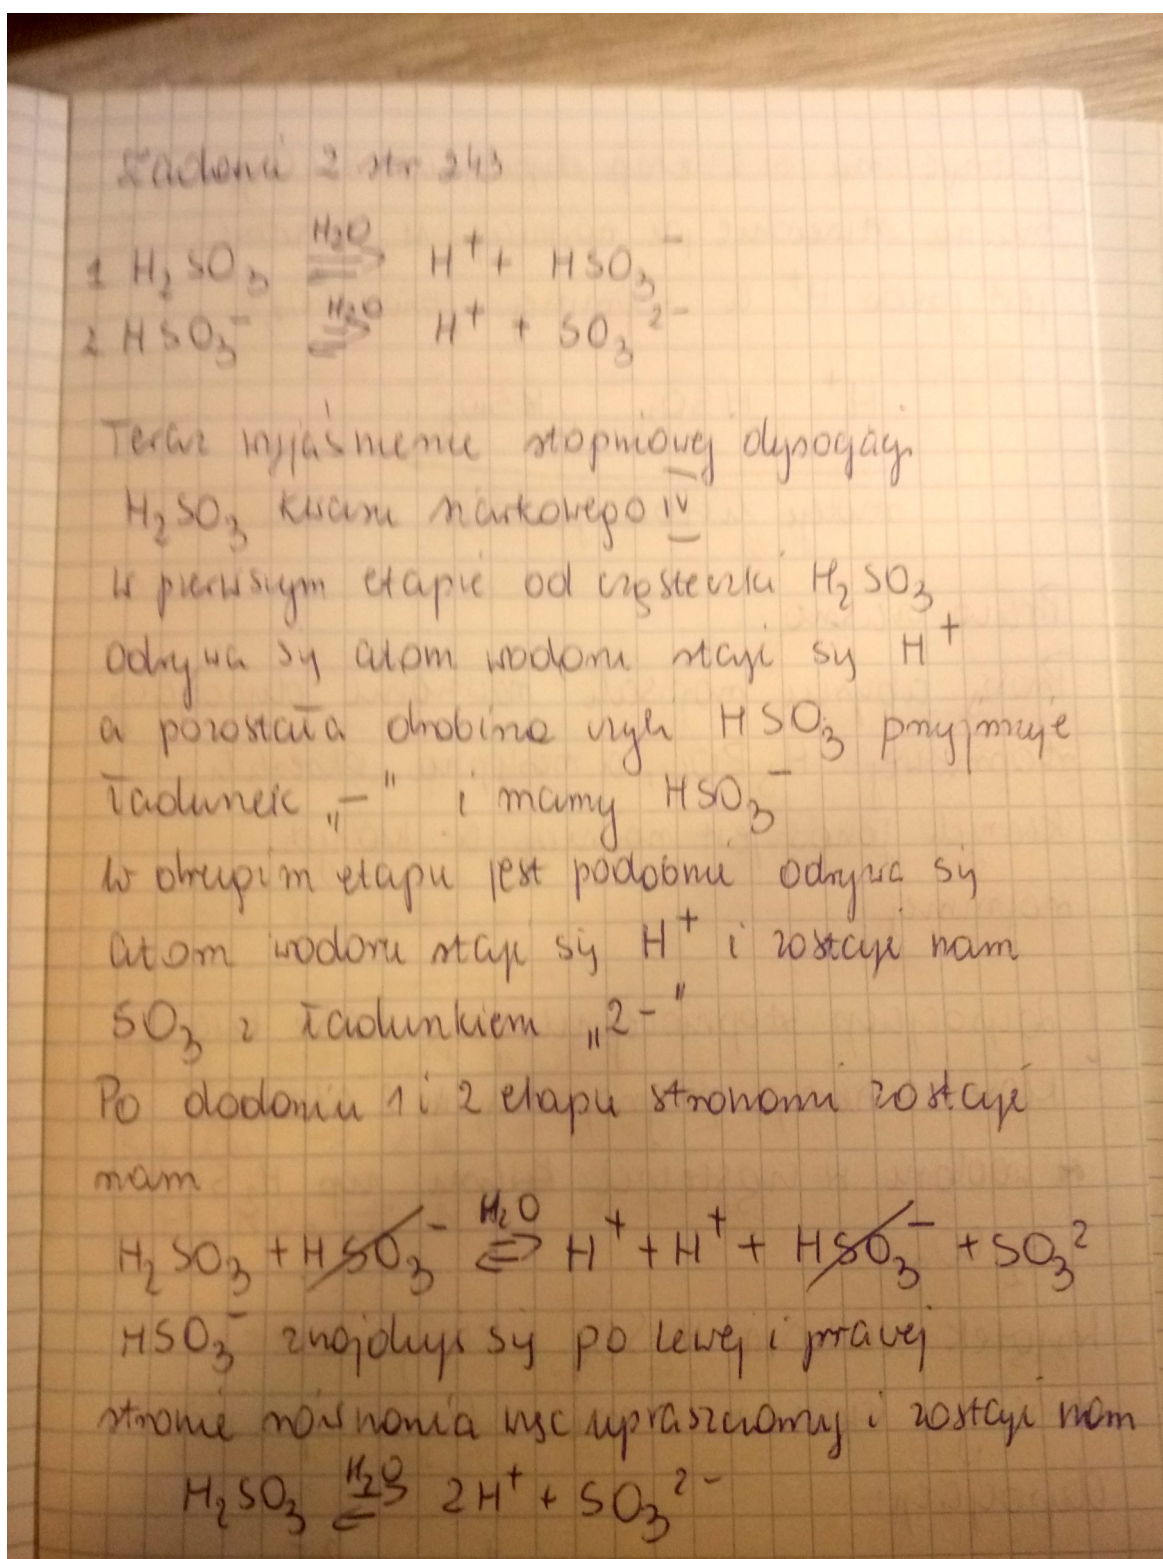 Zadanie 2 str 243
1 H₂SO₃ ⇌ H₂O H⁺ + HSO₃⁻
2 HSO₃⁻ ⇌ H₂O H⁺ + SO₃²⁻
Teraz wyjaśnienie stopniowej dysocjacji
H₂SO₃ kwasu siarkowego IV
W pierwszym etapie od cząsteczki H₂SO₃
odrywa się atom wodoru staje się H⁺
a pozostała drobina czyli HSO₃ przyjmuje
ładunek „−" i mamy HSO₃⁻
W drugim etapie jest podobnie odrywa się
atom wodoru staje się H⁺ i zostaje nam
SO₃ z ładunkiem „2-"
Po dodaniu 1 i 2 etapu stronami zostaje
nam
H₂SO₃ + HSO₃⁻ ⇌ H₂O H⁺ + H⁺ + HSO₃⁻ + SO₃²
HSO₃⁻ znajduje się po lewej i prawej
stronie równania więc upraszczamy i zostaje nam
H₂SO₃ ⇌ H₂O 2H⁺ + SO₃²⁻